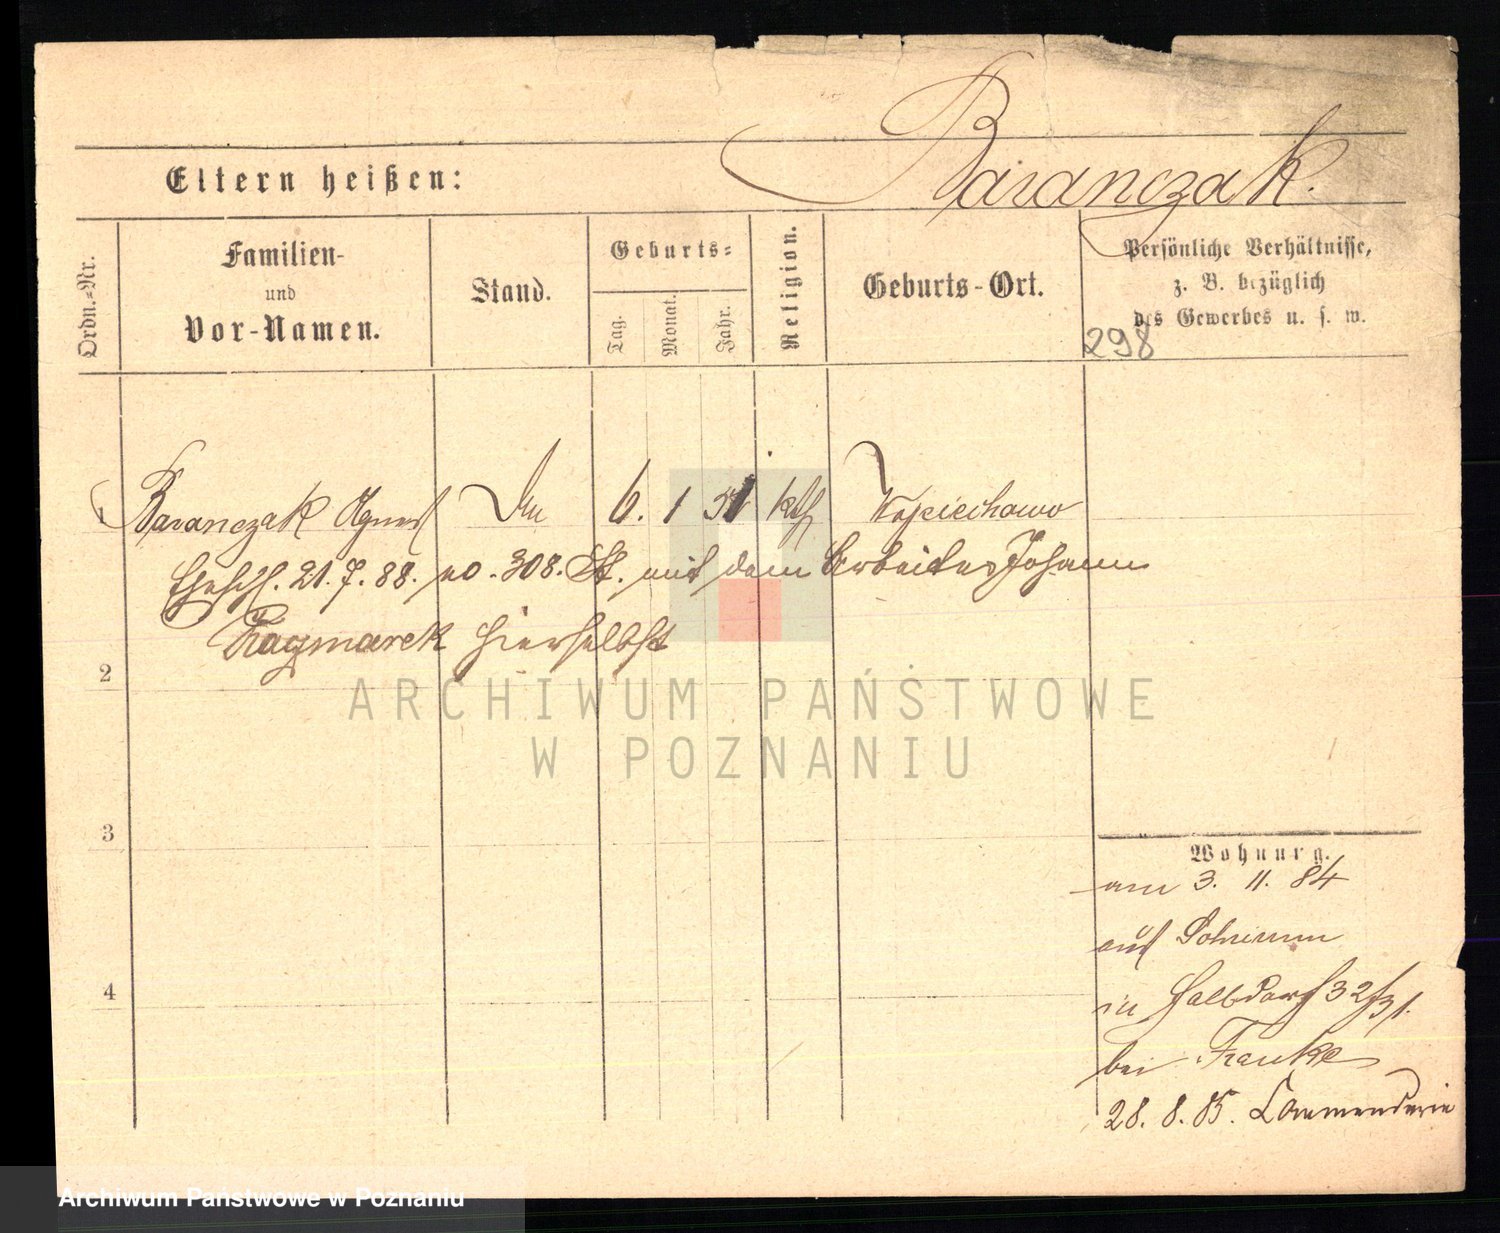 Baranczak.
Eltern heißen:
Ordn.-Nr.
Familien-
und
Vor-Namen.
Stand.
Geburts-
Tag.
Monat.
Jahr.
Religion.
Geburts-Ort.
Persönliche Verhältnisse,
z. B. bezüglich
des Gewerbes u. s. w.
298
1 Baranczak Agnes 6. 1 51 kth
Ehesch. 21. 7. 88. no. 308. St. mit dem Arbeiter Johann
hierselbst
2
ARCHIWUM PAŃSTWOWE
W POZNANIU
3
Wohnung.
am 3. 11. 84
aus
in Halbdorf 32/31.
bei Franke
28. 8. 85. Commenderie
4
Archiwum Państwowe w Poznaniu